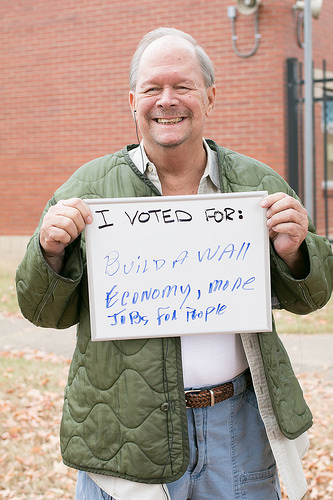 I VOTED FOR:
BUILD A WAll
ECONOMY, MORE
JOBS, FOR PEOPLE